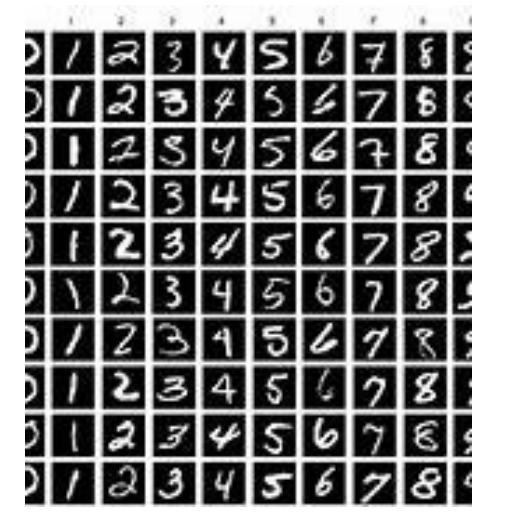 1 2 3 4 5 6 7 8
1 2 3 4 5 6 7 8
1 2 3 4 5 6 7 8
1 2 3 4 5 6 7 8
1 2 3 4 5 6 7 8
1 2 3 4 5 6 7 8
1 2 3 4 5 6 7 8
1 2 3 4 5 6 7 8
1 2 3 4 5 6 7 8
1 2 3 4 5 6 7 8
1 2 3 4 5 6 7 8